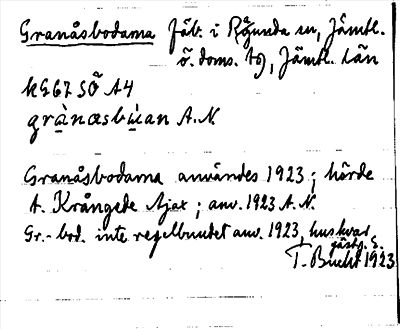 Granåsbodarna fäb. i Ragunda sn, Jämtl.
ö. doms. tg, Jämtl. län
kg 67 SÖ A4
grànasbúan A.N.
Granåsbodarna användes 1923; hörde
t. Krångede Ajax; anv. 1923 A.N.
Gr.-bod. inte regelbundet anv. 1923, hus kvar
gästg. S.
T. Bucht 1923